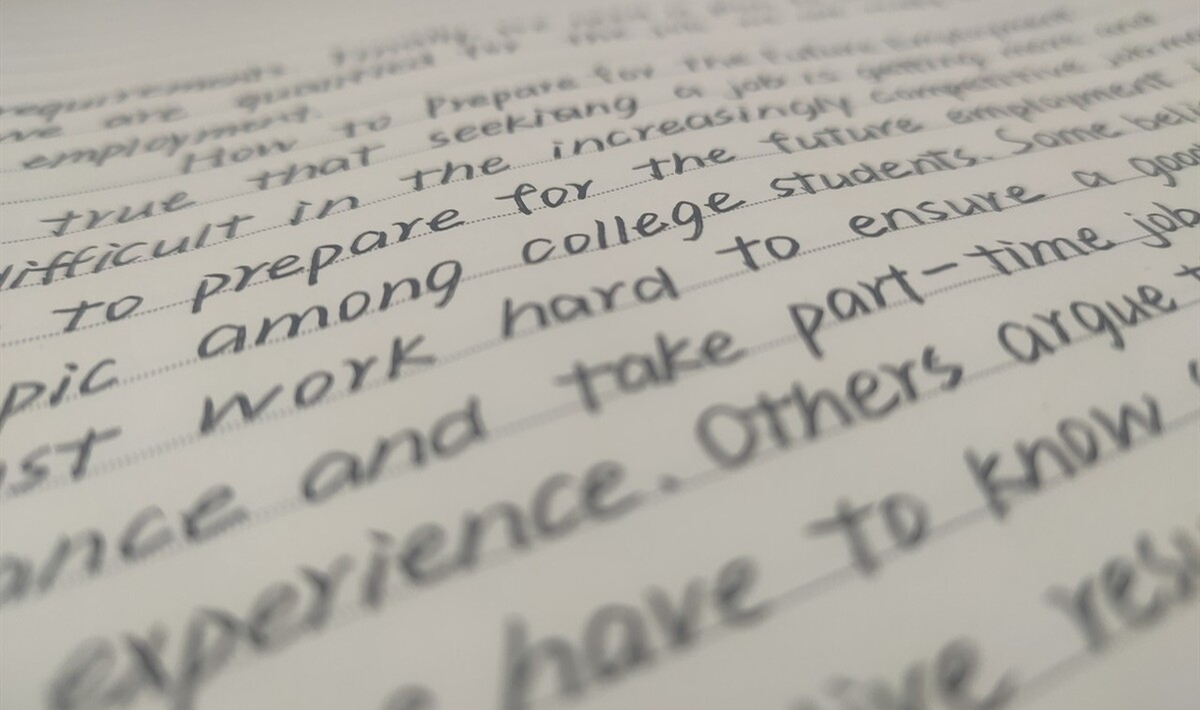 requirements
we are qualified for the
employment.
How to Prepare for the Future Employment
true that seekiang a job is getting more and
difficult in the increasingly competitive
to prepare for the future employment
pic among college students. Some beli
ust work hard to ensure a good
ance and take part-time job
experience. Others argue t
have to know
ive resu